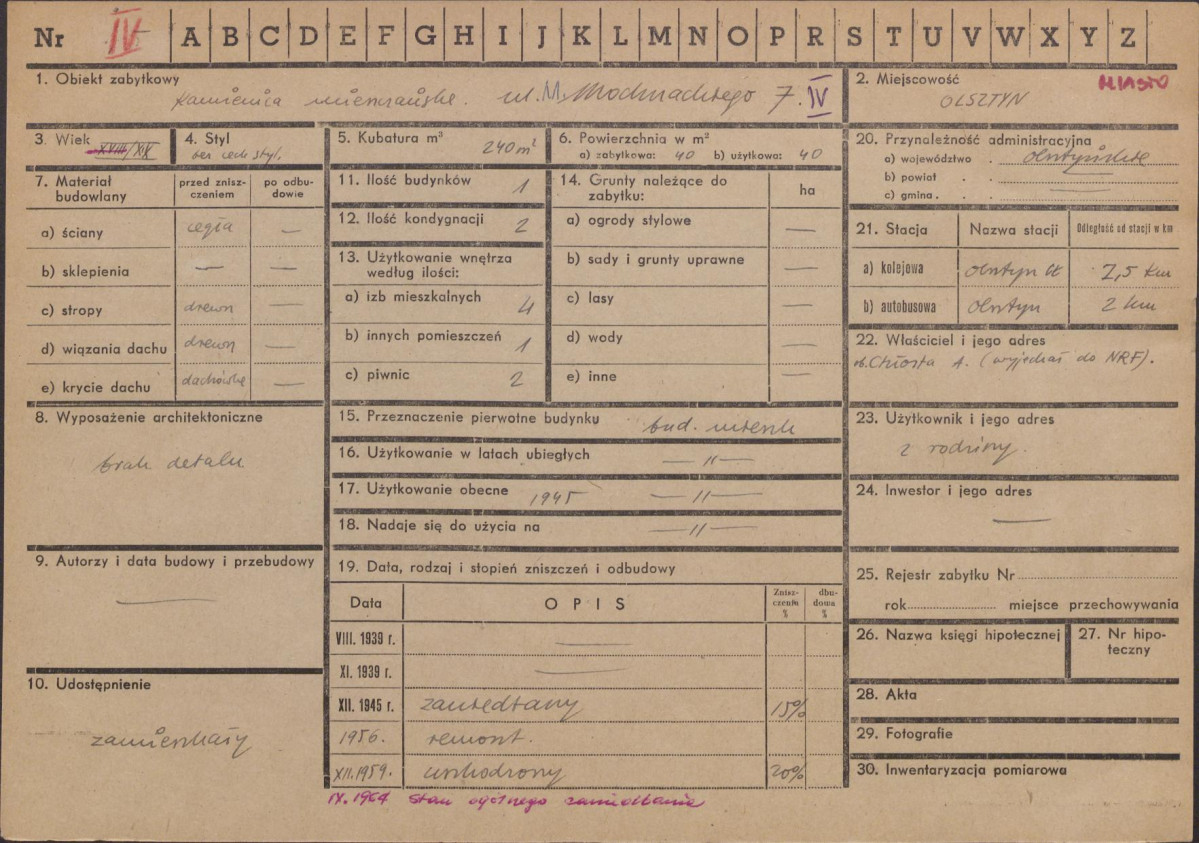 Nr IV A B C D E F G H I J K L M N O P R S T U V W X Y Z
1. Obiekt zabytkowy
kamienica mieszczańska. ul. M. Mochnackiego 7. IV
2. Miejscowość MIASTO
OLSZTYN
3. Wiek
XVIII/XIX
4. Styl
bez cech styl.
5. Kubatura m³ 240 m²
6. Powierzchnia w m²
a) zabytkowa: 40 b) użytkowa: 40
20. Przynależność administracyjna
a) województwo . olsztyńskie
b) powiat . .
c) gmina . . .
7. Materiał budowlany
przed zniszczeniem
po odbudowie
a) ściany cegła —
b) sklepienia — —
c) stropy drewn —
d) wiązania dachu drewn —
e) krycie dachu dachówka —
11. Ilość budynków 1
12. Ilość kondygnacji 2
13. Użytkowanie wnętrza
według ilości:
a) izb mieszkalnych 4
b) innych pomieszczeń 1
c) piwnic 2
14. Grunty należące do
zabytku: ha
a) ogrody stylowe —
b) sady i grunty uprawne —
c) lasy —
d) wody —
e) inne —
21. Stacja Nazwa stacji Odległość od stacji w km
a) kolejowa olsztyn 2,5 km
b) autobusowa olsztyn 2 km
22. Właściciel i jego adres
ob. Chłosta A. (wyjechał do NRF).
8. Wyposażenie architektoniczne
brak detalu
15. Przeznaczenie pierwotne budynku bud. mieszk
16. Użytkowanie w latach ubiegłych — 〃 —
17. Użytkowanie obecne 1945 — 〃 —
18. Nadaje się do użycia na — 〃 —
23. Użytkownik i jego adres
2 rodziny.
24. Inwestor i jego adres
—
9. Autorzy i data budowy i przebudowy
—
19. Data, rodzaj i stopień zniszczeń i odbudowy
Data OPIS Zniszczenia % dbudowa %
VIII. 1939 r. —
XI. 1939 r. —
XII. 1945 r. zaniedbany 15%
1956. remont.
XII.1959. uszkodzony 20%
IX.1964 stan ogólnego zaniedbania
25. Rejestr zabytku Nr
rok miejsce przechowywania
26. Nazwa księgi hipotecznej
27. Nr hipoteczny
10. Udostępnienie
zamieszkały
28. Akta
29. Fotografie
30. Inwentaryzacja pomiarowa